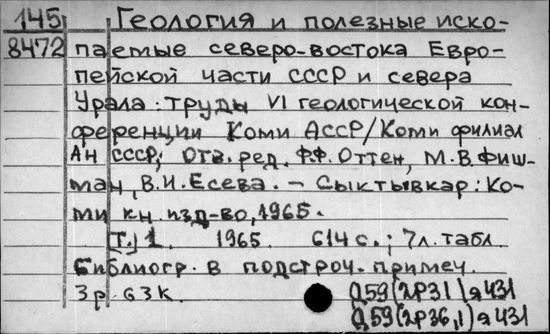 145 Геология и полезные иско-
8472 паемые северо-востока Евро-
пейской части СССР и севера
Урала: труды VI геологической кон-
ференции Коми АССР/Коми филиал
АН СССР; Отв. ред. Ф.Ф. Оттен, М.В. Фиш-
ман, В.И. Есева. – Сыктывкар: Ко-
ми кн. изд-во, 1965.
Т.1. 1965. 614 с.; 7л. табл.
Библиогр. в подстроч. примеч.
3 р. 63 к. Д59(2Р31)я431
Д59(2Р36,1)я431